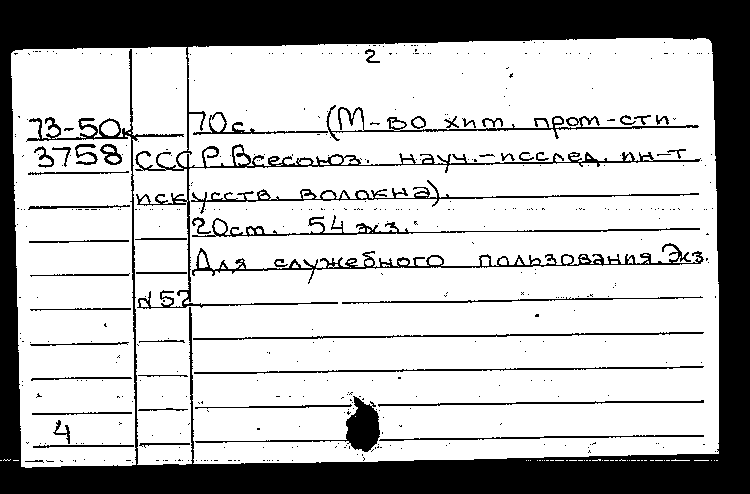 2
73-50к 70с. (М-во хим. пром-сти
3758 СССР. Всесоюз. науч.-исслед. ин-т
искусств. волокна).
20см. 54 экз.
Для служебного пользования. Экз.
N 52
4